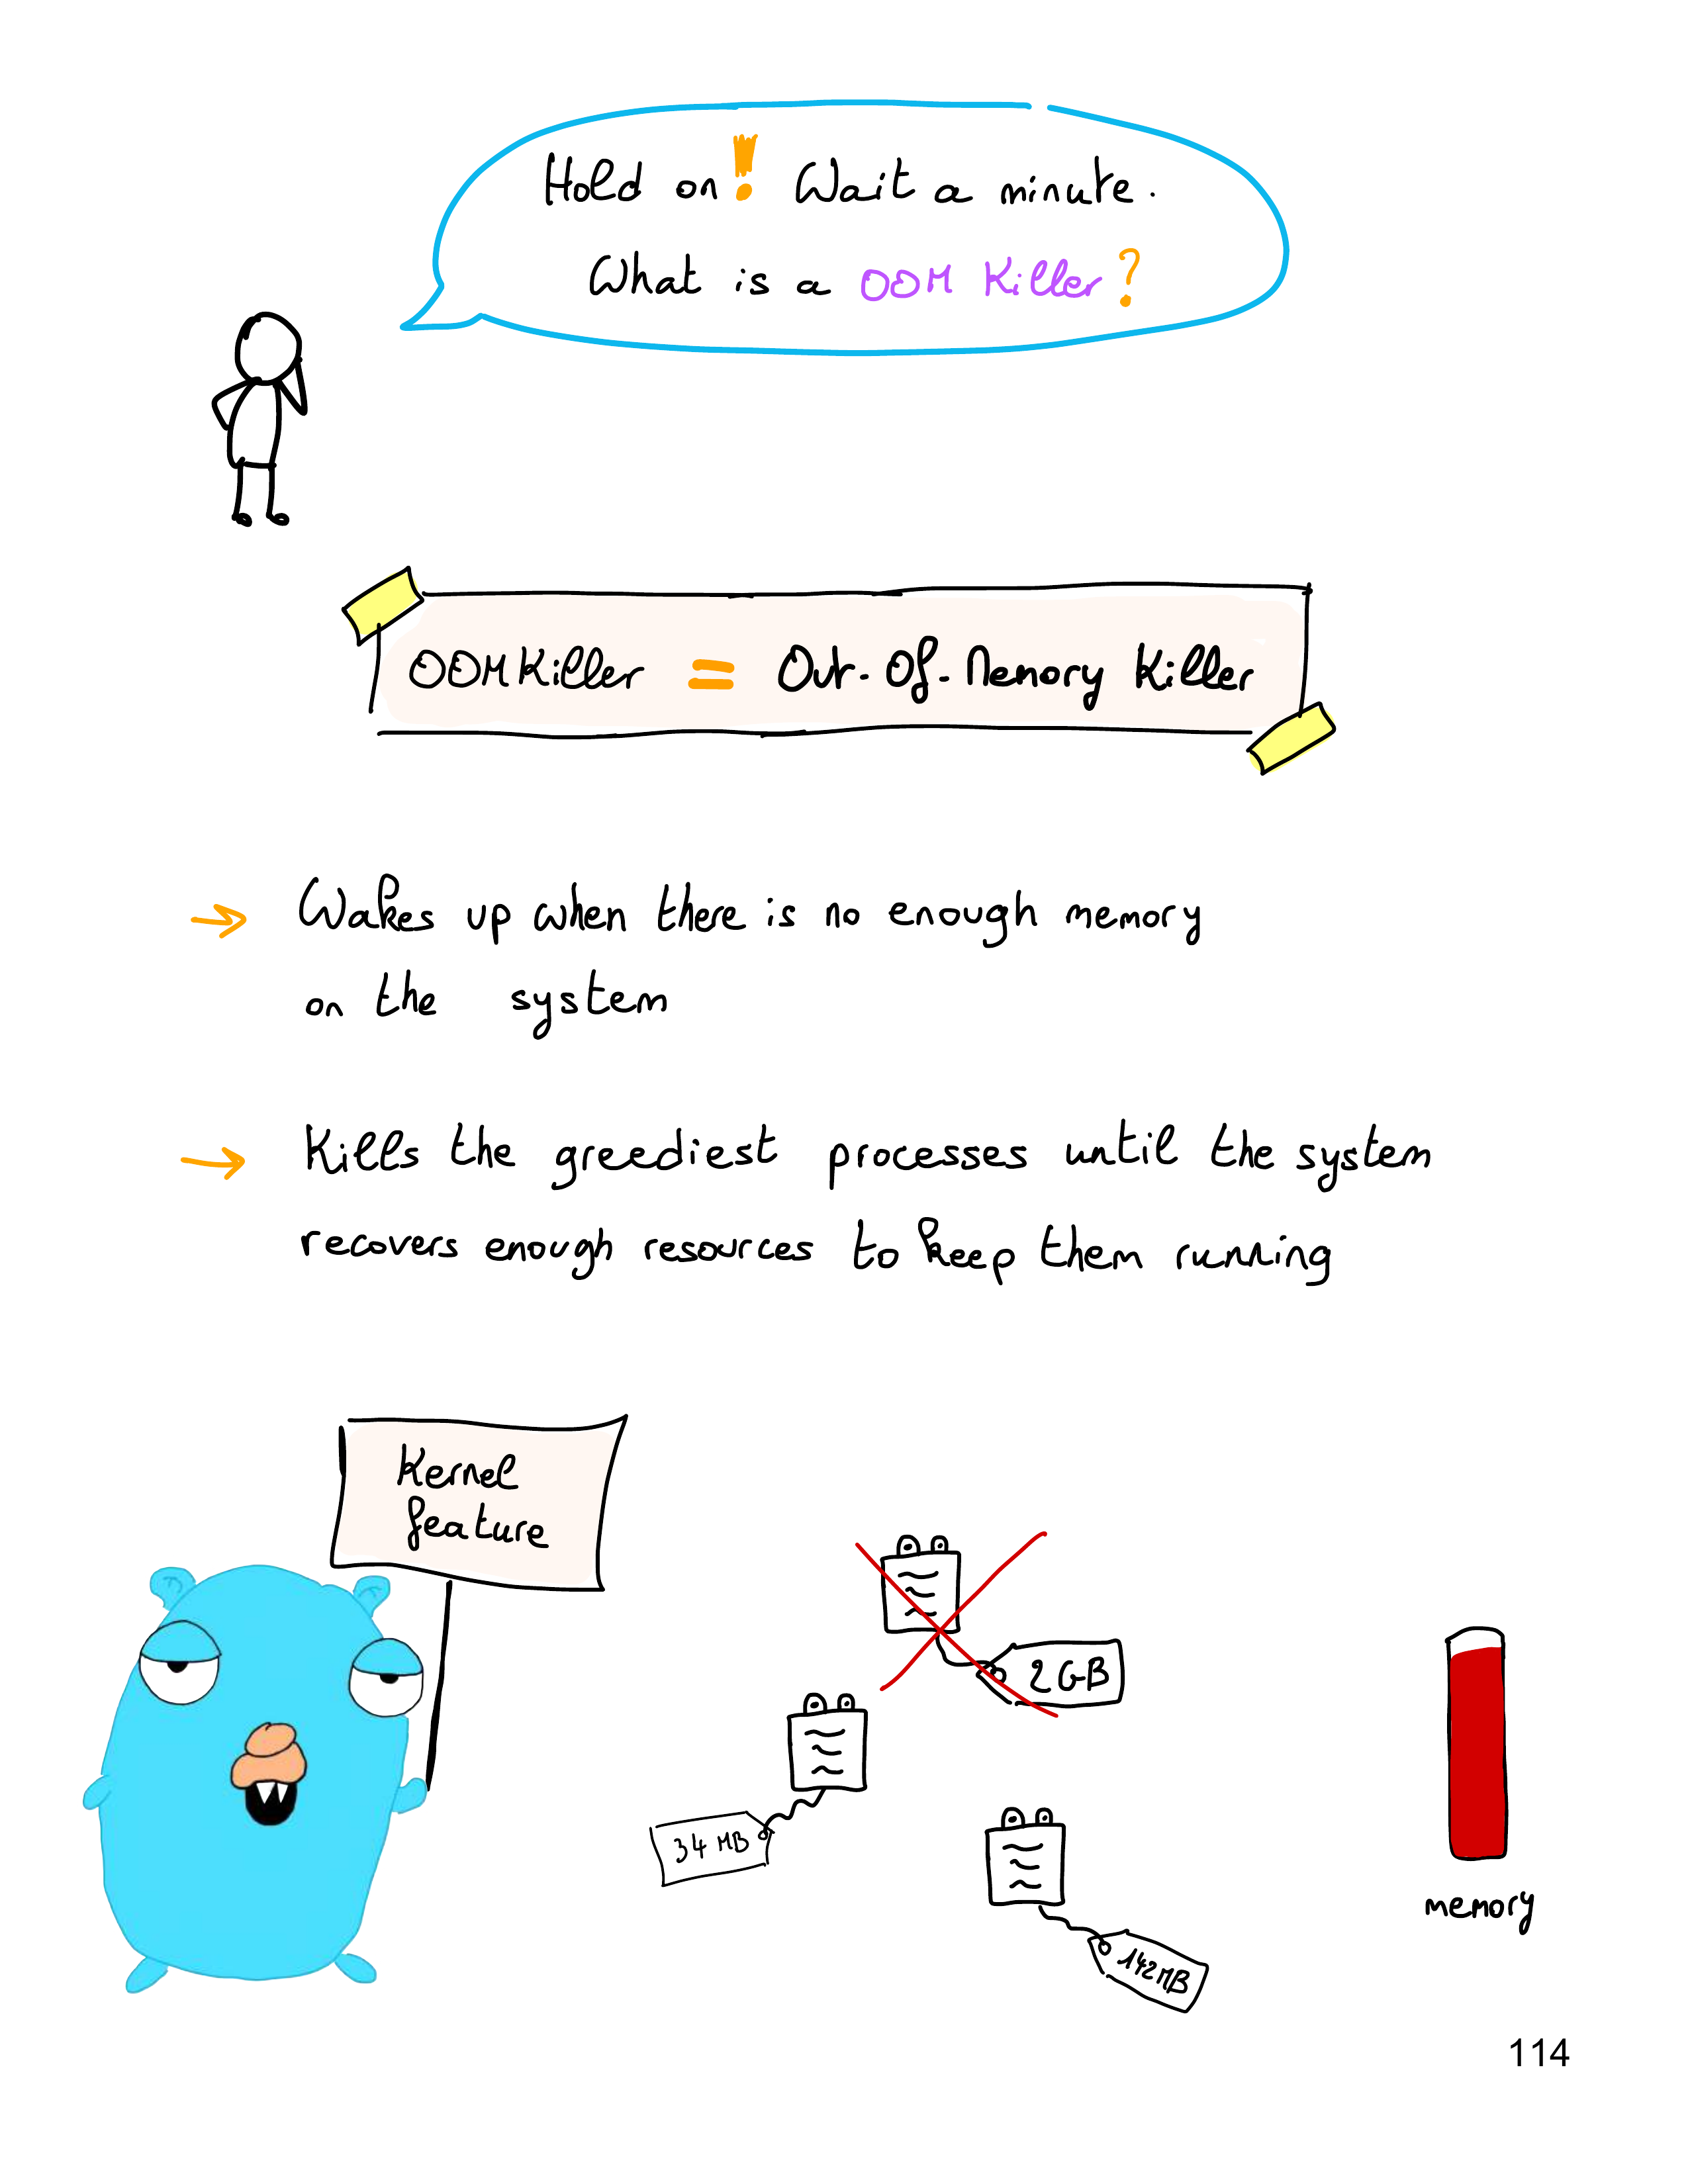 Hold on! Wait a minute.
What is a OOM Killer?
OOMKiller = Out-Of-Memory Killer
→ Wakes up when there is no enough memory
on the system
→ Kills the greediest processes until the system
recovers enough resources to keep them running
Kernel
feature
2 GB
34 MB
142MB
memory
114